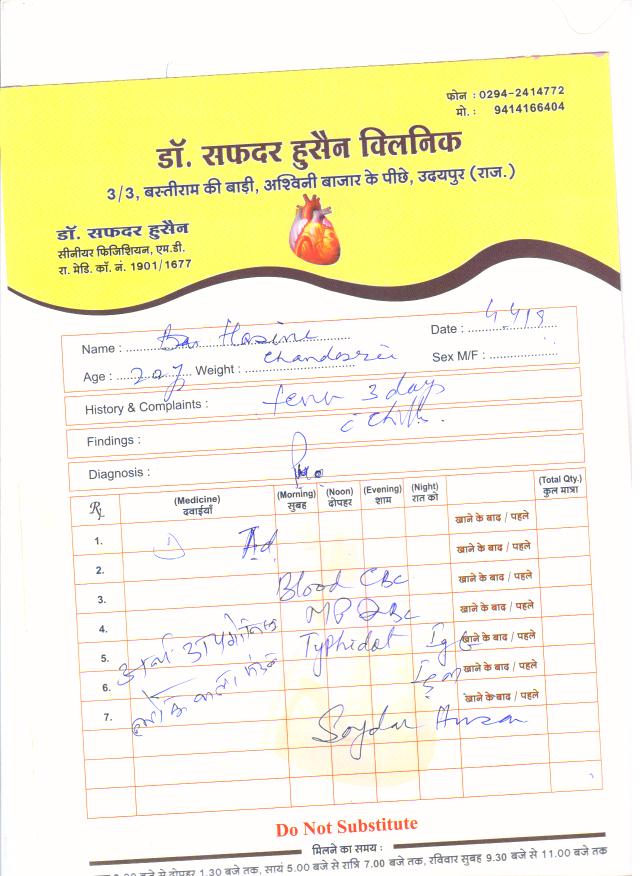 फोन : 0294-2414772
मो. : 9414166404
डॉ. सफदर हुसैन क्लिनिक
3/3, बस्तीराम की बाड़ी, अश्विनी बाजार के पीछे, उदयपुर (राज.)
डॉ. सफदर हुसैन
सीनीयर फिजिशियन, एम.डी.
रा. मेडि. कॉ. नं. 1901/1677
Name :
Date :
Age : Weight : Sex M/F :
History & Complaints : fever 3 days
c chills.
Findings :
Diagnosis :
Rx (Medicine) दवाईयाँ (Morning) सुबह (Noon) दोपहर (Evening) शाम (Night) रात को (Total Qty.) कुल मात्रा
खाने के बाद / पहले
1. Ad
खाने के बाद / पहले
2.
Blood CBC खाने के बाद / पहले
3.
खाने के बाद / पहले
4.
Typhidot IgG खाने के बाद / पहले
5.
IgM खाने के बाद / पहले
6.
खाने के बाद / पहले
7.
Do Not Substitute
मिलने का समय :
बजे से दोपहर 1.30 बजे तक, सायं 5.00 बजे से रात्रि 7.00 बजे तक, रविवार सुबह 9.30 बजे से 11.00 बजे तक